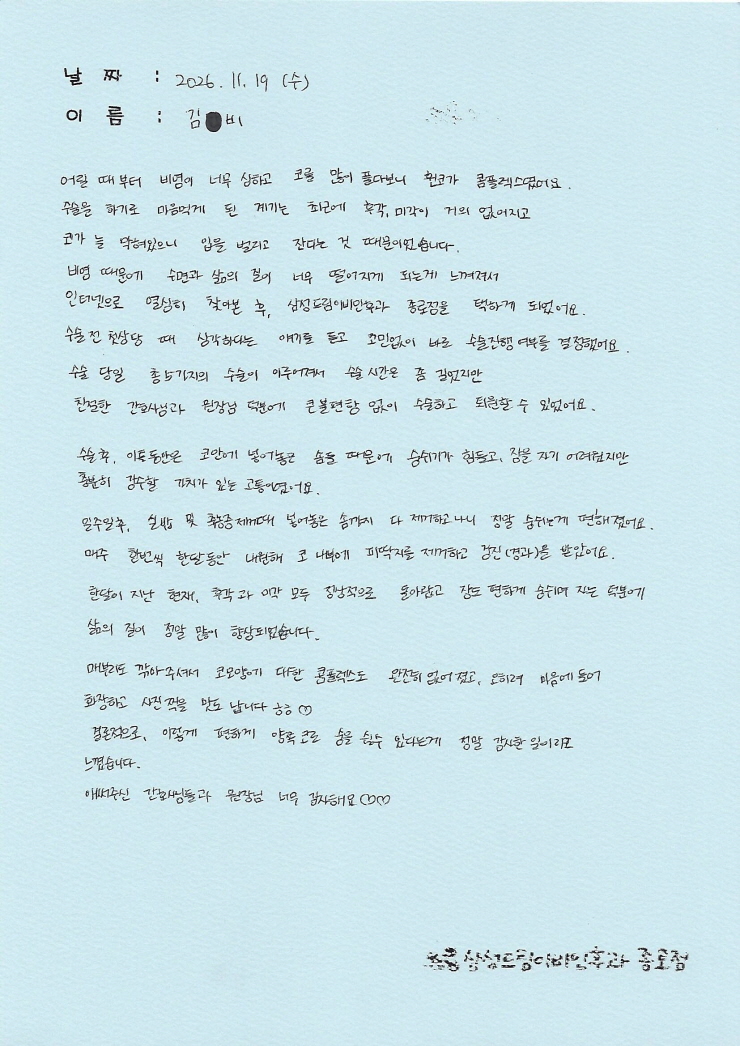 날 짜 : 2026. 11. 19 (수)
이 름 : 김 비
어릴 때부터 비염이 너무 심하고 코를 많이 풀다보니 휜코가 콤플렉스였어요.
수술을 하기로 마음먹게 된 계기는 최근에 후각, 미각이 거의 없어지고
코가 늘 막혀있으니 입을 벌리고 잔다는 것 때문이었습니다.
비염 때문에 수면과 삶의 질이 너무 떨어지게 되는게 느껴져서
인터넷으로 열심히 찾아본 후, 삼성드림이비인후과 종로점을 택하게 되었어요.
수술 전 첫상담 때 심각하다는 얘기를 듣고 고민없이 바로 수술진행 여부를 결정했어요.
수술 당일 총 5가지의 수술이 이루어져서 수술 시간은 좀 길었지만
친절한 간호사님과 원장님 덕분에 큰불편함 없이 수술하고 퇴원할 수 있었어요.
수술 후, 이틀동안은 코안에 넣어놓은 솜들 때문에 숨쉬기가 힘들고, 잠을 자기 어려웠지만
충분히 감수할 가치가 있는 고통이였어요.
일주일후, 실밥 및 축농증제거때 넣어놓은 솜까지 다 제거하고나니 정말 숨쉬는게 편해졌어요.
매주 한번씩 한달동안 내원해 코 내부에 피딱지를 제거하고 검진(경과)을 받았어요.
한달이 지난 현재, 후각과 미각 모두 정상적으로 돌아왔고 잠도 편하게 숨쉬며 자는 덕분에
삶의 질이 정말 많이 향상되었습니다.
매부리도 깎아주셔서 코모양에 대한 콤플렉스도 완전히 없어졌고, 오히려 마음에 들어
화장하고 사진찍을 맛도 납니다 ㅎㅎ ♡
결론적으로, 이렇게 편하게 양쪽 코로 숨을 쉴수 있다는게 정말 감사한 일이라고
느꼈습니다.
애써주신 간호사님들과 원장님 너무 감사해요 ♡♡
삼성드림이비인후과 종로점